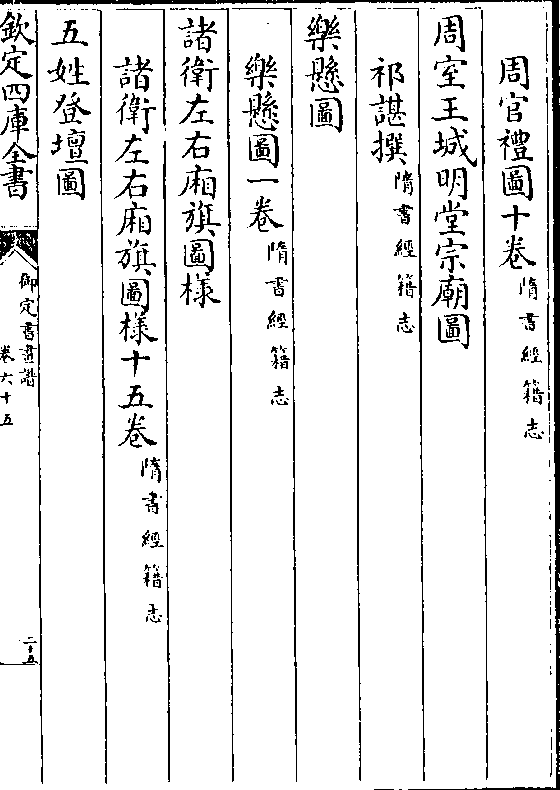 周官禮圖十卷隋書經籍志
周室王城明堂宗廟圖
祁諶撰隋書經籍志
樂懸圖
樂懸圖一卷隋書經籍志
諸衛左右廂旗圖樣
諸衛左右廂旗圖樣十五卷隋書經籍志
五姓登壇圖
欽定四庫全書
御定書畫譜
卷六十五
二十五